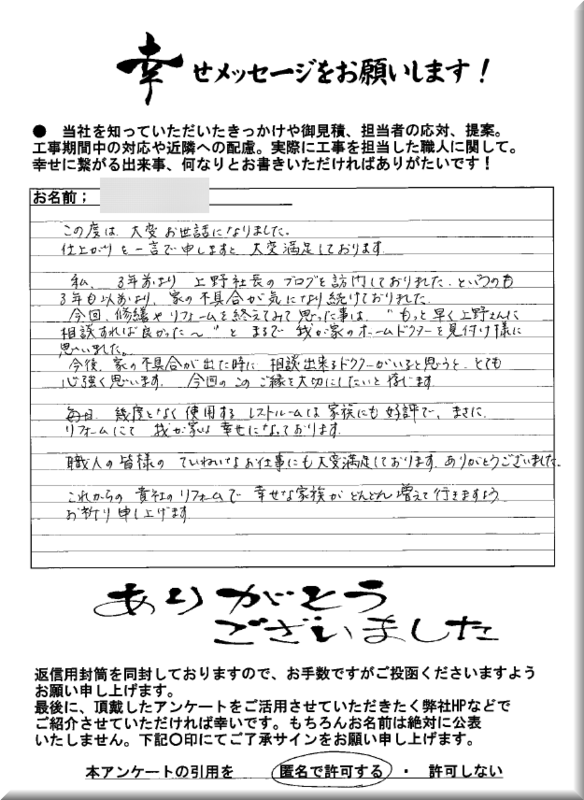 幸せメッセージをお願いします！
● 当社を知っていただいたきっかけや御見積、担当者の応対、提案。
工事期間中の対応や近隣への配慮。実際に工事を担当した職人に関して。
幸せに繋がる出来事、何なりとお書きいただければありがたいです！
お名前；
この度は、大変お世話になりました。
仕上がりを一言で申しますと、大変満足しております
私、3年前より 上野社長のブログを訪門しておりました。というのも
3年も以前より、家の不具合が気になり続けておりました
今回、修繕やリフォームを終えてみて思った事は、"もっと早く上野さんに
相談すれば良かった～"と まるで 我が家のホームドクターを見付け様に
思いました。
今後、家の不具合が出た時に 相談出来るドクターがいると思うと、とても
心強く思います。 今回のこのご縁を大切にしたいと存じます
毎日 幾度となく使用する レストルームは家族にも好評で、まさに
リフォームにて 我が家は幸せになっております
職人の皆様の ていねいなお仕事にも大変満足しております。ありがとうございました。
これからの 貴社のリフォームで 幸せな家族が どんどん増えて行きますよう
お祈り申し上げます
ありがとう
ございました
返信用封筒を同封しておりますので、お手数ですがご投函くださいますよう
お願い申し上げます。
最後に、頂戴したアンケートをご活用させていただきたく弊社HPなどで
ご紹介させていただければ幸いです。もちろんお名前は絶対に公表
いたしません。下記〇印にてご了承サインをお願い申し上げます。
本アンケートの引用を 匿名で許可する ・ 許可しない